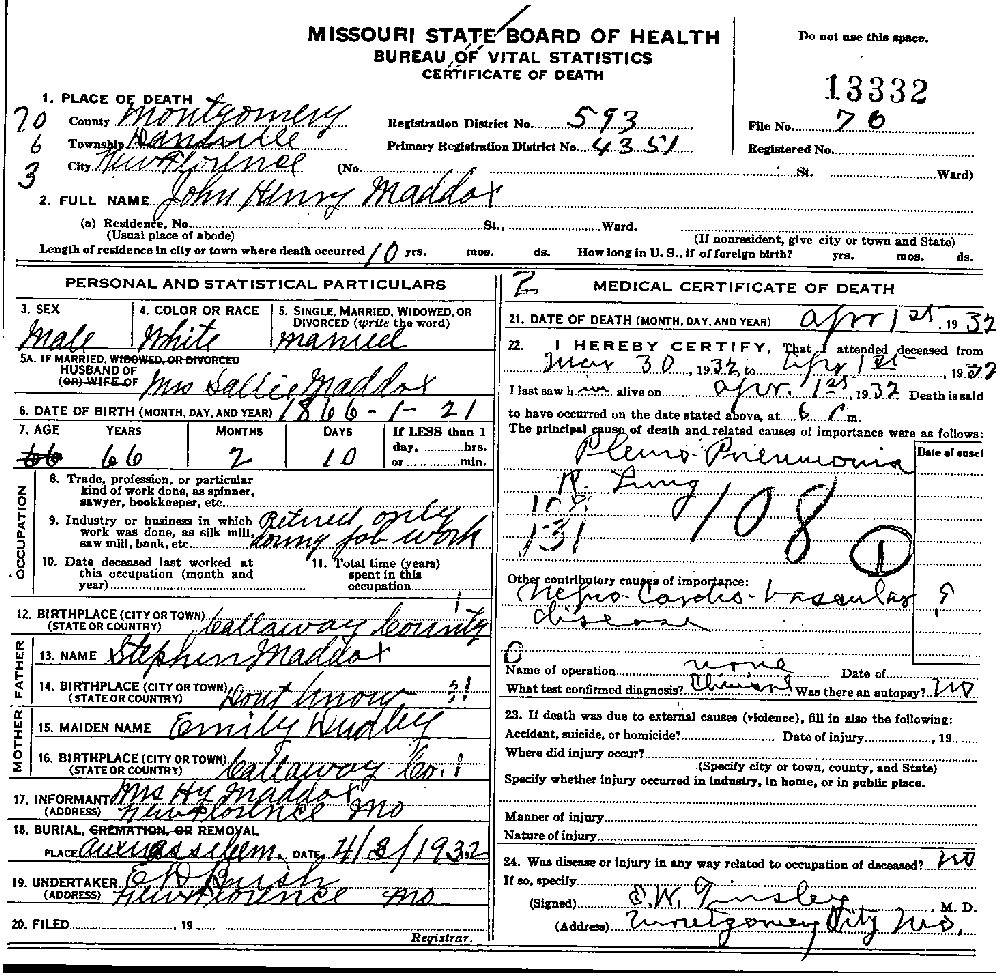 MISSOURI STATE BOARD OF HEALTH
BUREAU OF VITAL STATISTICS
CERTIFICATE OF DEATH
Do not use this space.
13332
1. PLACE OF DEATH
70 County Montgomery Registration District No. 593 File No. 76
6 Township Danville Primary Registration District No. 4351 Registered No.
3 City New Florence (No. St. Ward)
2. FULL NAME John Henry Maddox
(a) Residence, No. St., Ward.
(Usual place of abode) (If nonresident, give city or town and State)
Length of residence in city or town where death occurred 10 yrs. mos. ds. How long in U. S., if of foreign birth? yrs. mos. ds.
PERSONAL AND STATISTICAL PARTICULARS
3. SEX 4. COLOR OR RACE 5. SINGLE, MARRIED, WIDOWED, OR DIVORCED (write the word)
Male White Married
5A. IF MARRIED, WIDOWED, OR DIVORCED
HUSBAND OF
(OR) WIFE OF Mrs Sallie Maddox
6. DATE OF BIRTH (MONTH, DAY, AND YEAR) 1866-1-21
7. AGE YEARS MONTHS DAYS If LESS than 1
day, hrs.
or min.
66 66 2 10
OCCUPATION
8. Trade, profession, or particular
kind of work done, as spinner,
sawyer, bookkeeper, etc.
9. Industry or business in which
work was done, as silk mill,
saw mill, bank, etc. Retired only doing job work
10. Date deceased last worked at
this occupation (month and
year)
11. Total time (years)
spent in this
occupation
12. BIRTHPLACE (CITY OR TOWN)
(STATE OR COUNTRY) Callaway County
FATHER
13. NAME Stephen Maddox
14. BIRTHPLACE (CITY OR TOWN)
(STATE OR COUNTRY) Dont know
MOTHER
15. MAIDEN NAME Emily Dudley
16. BIRTHPLACE (CITY OR TOWN)
(STATE OR COUNTRY) Callaway Co.
17. INFORMANT Mrs Hy Maddox
(ADDRESS) New Florence Mo
18. BURIAL, CREMATION, OR REMOVAL
PLACE DATE 4/3/1932
19. UNDERTAKER
(ADDRESS) New Florence Mo
20. FILED , 19
Registrar.
2 MEDICAL CERTIFICATE OF DEATH
21. DATE OF DEATH (MONTH, DAY, AND YEAR) Apr 1st, 1932
22. I HEREBY CERTIFY, That I attended deceased from
Mar 30, 1932, to Apr 1st, 1932
I last saw him alive on Apr. 1st, 1932 Death is said
to have occurred on the date stated above, at 6 P m.
The principal cause of death and related causes of importance were as follows:
Date of onset
Pleuro-Pneumonia
R. Lung
108
131
108
1
Other contributory causes of importance:
Nephro-Cardio-Vascular ?
disease
0
Name of operation none Date of
What test confirmed diagnosis? Clinical Was there an autopsy? No
23. If death was due to external causes (violence), fill in also the following:
Accident, suicide, or homicide? Date of injury , 19
Where did injury occur?
(Specify city or town, county, and State)
Specify whether injury occurred in industry, in home, or in public place.
Manner of injury
Nature of injury
24. Was disease or injury in any way related to occupation of deceased? No
If so, specify
(Signed) Tinsley M. D.
(Address) Montgomery City Mo.